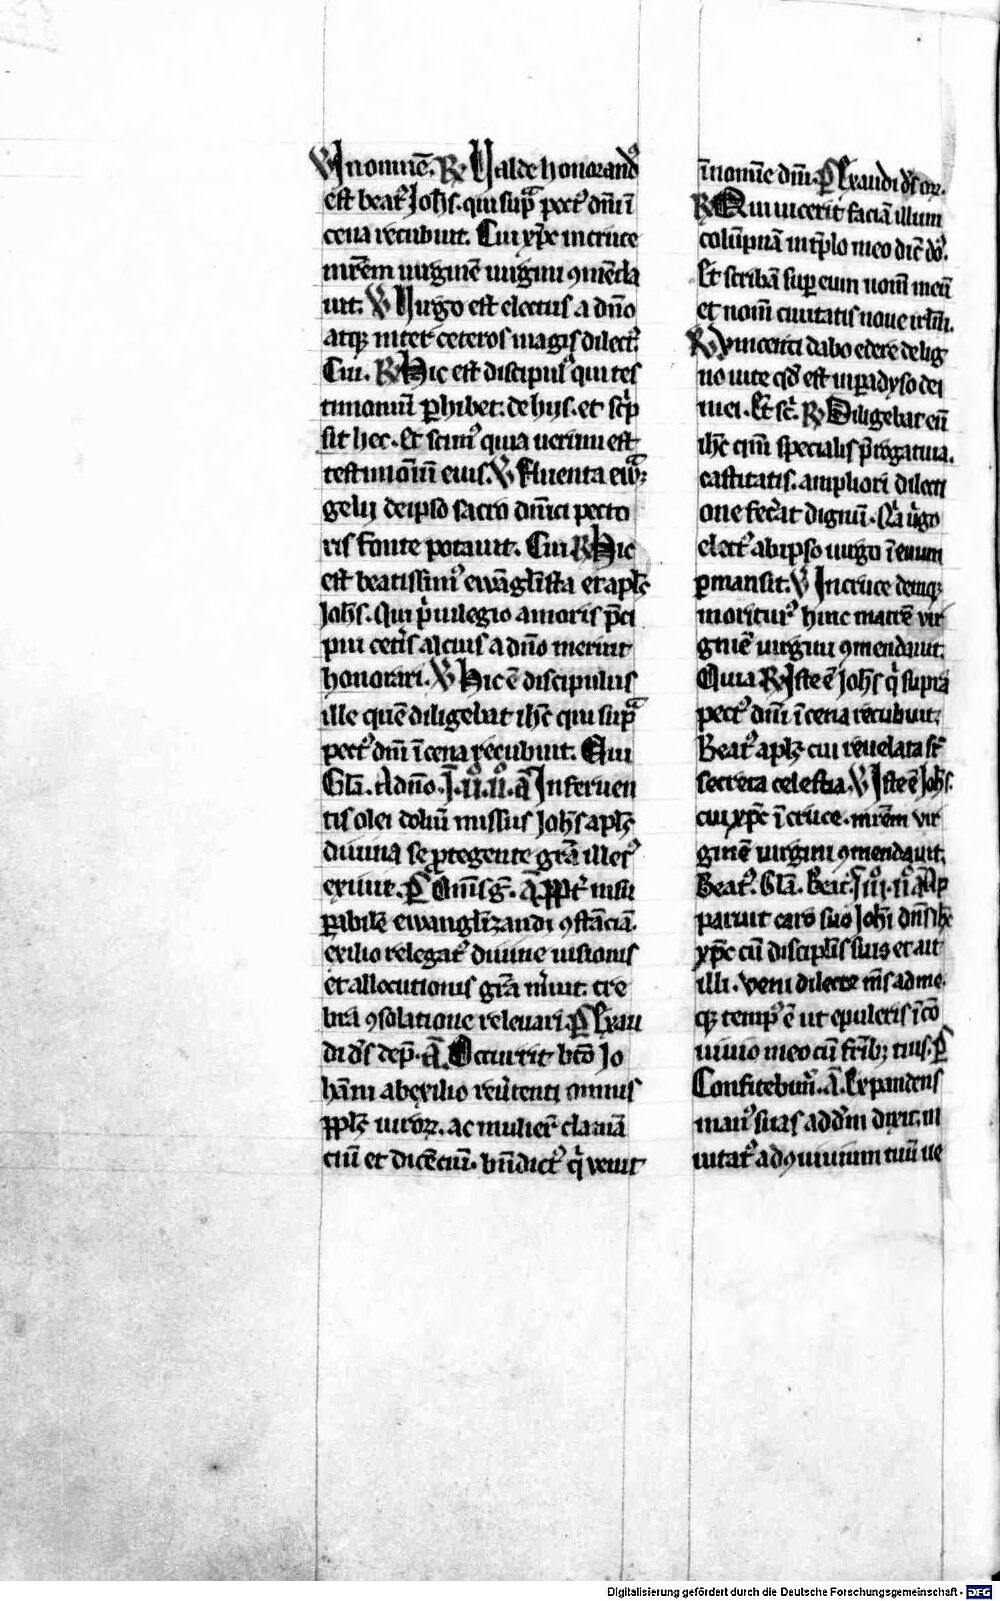 ℣ In nomīe. ℟ Valde honorandꝰ
est beatꝰ Joh̄s. qui supᵃ pectꝰ dn̄i ī
cena recubuit. Cui xp̄c in cruce
mr̄em uirginē uirgini ꝯmēda
uit. ℣ Uirgo est electus a dn̄o
atq; inter ceteros magis dilectꝰ
Cui. ℟ Hic est discipulꝰ qui tes
timoniū ꝑhibet. de hys. et sc̄p
sit hec. Et scimꝰ quia uerum est
testimoniū eius. ℣ Fluenta ewᵃ
gelij de ipso sacro dn̄ici pecto
ris fonte potauit. Cui ℟ Hic
est beatissimꝰ ewāgl̄ista et apl̄s
Joh̄s. Qui p̄uilegio amoris p̄ci
pui cet̄is alcius a dn̄o meruit
honorari. ℣ Hic ē discipulus
ille quē diligebat ih̄c qui supᵃ
pectꝰ dn̄i ī cena recubuit. Qui
Gl̄a. Ad dn̄o. J̄. u̇. u̇. ā Inferuen
tis olei doliū missus Joh̄s apl̄s
diuina se ꝓtegente gr̄a illesꝰ
exiuit. P̄ Om̄s g̅. ā Ppt̄ insu
ꝑabilē ewangl̄izandi ꝯstāciā.
exilio relegatꝰ diuine uisionis
et allocutionis gr̄a m̄uit. cre
bra ꝯsolatione releuari. P̄ Exau
di ds̄ dep̄. ā. Occurrit bt̄o Jo
hāni ab exilio reu̅tenti omnis
ppl̄s uiroꝝ. ac mulierꝝ clamā
ciū et dicēciū. bn̄dictꝰ q̇ venit
ī nomīe dn̄i. P̄ Exaudi ds̄ or̄.
℟ Qui uicerit faciā illum
colūpnā in tp̄lo meo dic̄ dōs.
Et scribā super eum nom̄ meū
et nom̄ ciuitatis noue irl̄m.
℟ Vincenti dabo edere de lig
no uite qd̄ est in paradyso dei
mei. Et sc̄. ℟ Diligebat eū
ih̄c qm̄ specialis p̄rogatiua.
castitatis. ampliori dilecti
one fec̄at dignū. Q̇a ūgo
electꝰ ab ipso uirgo ī euum
ꝑmansit. ℣ In cruce deniq;
moriturꝰ hinc matrē vir
ginē uirgini ꝯmendauit.
Quia ℟ Iste ē Joh̄s q̇ supra
pectꝰ dn̄i ī cena recubuit.
Beatꝰ apl̄s cui reuelata st̄
secreta celestia. ℣ Iste ē Joh̄s.
cui xp̄c ī cruce. mr̄em vir
ginē uirgini ꝯmendauit.
Beatꝰ. Gl̄a. Beatꝰ. J̄ u̇. u̇. ā Ap
paruit caro suo Joh̄i dn̄s ih̄c
xp̄c cū discipl̄is suis et ait
illi. veni dilecte m̄s ad me.
q; tempꝰ ē ut epuleris ī cō
uiuio meo cū fr̄ib; tuis. P̄
Confitebimꝰ. ā. Expandens
manꝰ suas ad dm̄ dixit. in
uitatꝰ ad ꝯuiuium tuū ue
Digitalisierung gefördert durch die Deutsche Forschungsgemeinschaft - DFG